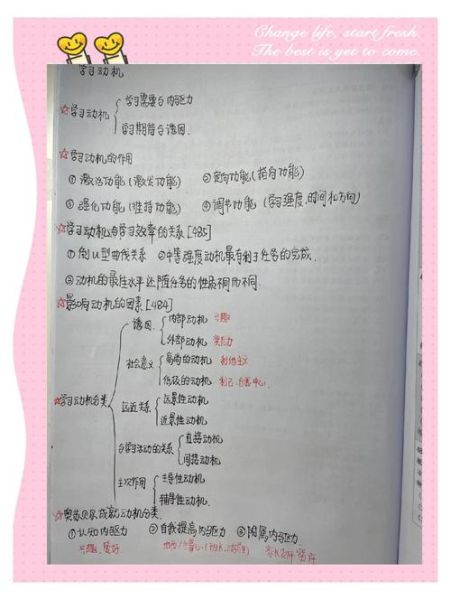 Change life, start fresh.
The best is yet to come.
学习动机
☆学习动机
学习需要与内驱力
学习期待与诱因
☆学习动机的作用
①激活功能(激发功能) ②定向功能(指向功能)
③强化功能(维持功能) ④调节功能(学习强度、时间和方向)
☆学习动机与学习效率的关系[485]
①倒U型曲线关系 ②中等强度动机最有利于任务的完成
③动机的最佳水平还随任务的性质不同而不同.
☆影响动机的因素[484]
☆学习动机分类
诱因
内部动机 兴趣
外部动机
社会意义
高尚的动机 利他主义
低级的动机 利己、自我中心
远近关系
远景性动机
近景性动机
与学习活动的关系
直接动机
间接动机
主次作用
主导性动机
辅导性动机
☆奥苏贝尔成就动机分类.
①认知内驱力 ②自我提高内驱力 ③附属内驱力
兴趣、爱好